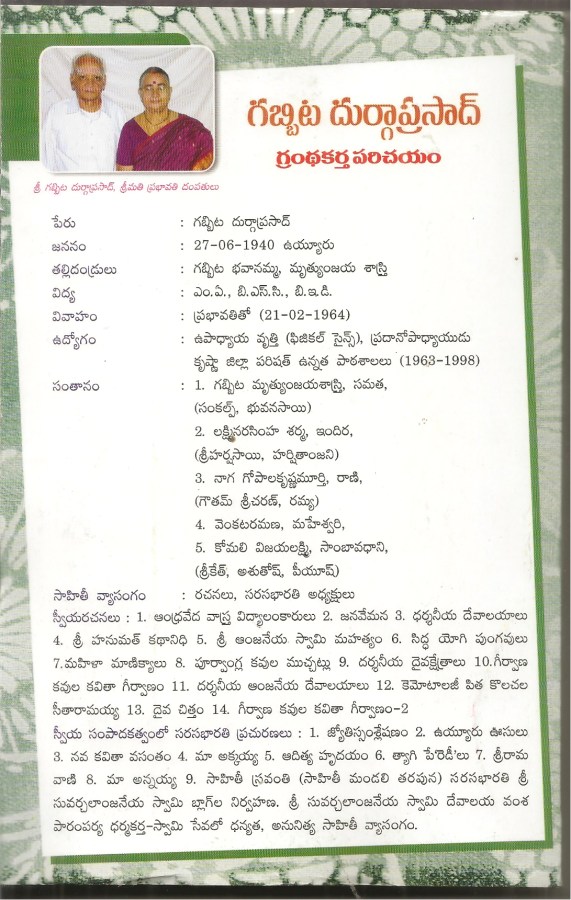 గబ్బిట దుర్గాప్రసాద్
గ్రంథకర్త పరిచయం
శ్రీ గబ్బిట దుర్గాప్రసాద్, శ్రీమతి ప్రభావతి దంపతులు
పేరు : గబ్బిట దుర్గాప్రసాద్
జననం : 27-06-1940 ఉయ్యూరు
తల్లిదండ్రులు : గబ్బిట భవానమ్మ, మృత్యుంజయ శాస్త్రి
విద్య : ఎం.ఏ., బి.ఎస్.సి., బి.ఇ.డి.
వివాహం : ప్రభావతితో (21-02-1964)
ఉద్యోగం : ఉపాధ్యాయ వృత్తి (ఫిజికల్ సైన్స్), ప్రదానోపాధ్యాయుడు
కృష్ణా జిల్లా పరిషత్ ఉన్నత పాఠశాలలు (1963-1998)
సంతానం : 1. గబ్బిట మృత్యుంజయశాస్త్రి, సమత,
(సంకల్ప్, భువనసాయి)
2. లక్ష్మినరసింహ శర్మ, ఇందిర,
(శ్రీహర్షసాయి, హర్షితాంజని)
3. నాగ గోపాలకృష్ణమూర్తి, రాణి,
(గౌతమ్ శ్రీచరణ్, రమ్య)
4. వెంకటరమణ, మహేశ్వరి,
5. కోమలి విజయలక్ష్మి, సాంబావధాని,
(శ్రీకేత్, అశుతోష్, పీయూష్)
సాహితీ వ్యాసంగం : రచనలు, సరసభారతి అధ్యక్షులు
స్వీయరచనలు : 1. ఆంధ్రవేద వాస్త్ర విద్యాలంకారులు 2. జనవేమన 3. ధర్శనీయ దేవాలయాలు
4. శ్రీ హనుమత్ కథానిధి 5. శ్రీ ఆంజనేయ స్వామి మహత్యం 6. సిద్ధ యోగి పుంగవులు
7.మహిళా మాణిక్యాలు 8. పూర్వాంగ్ర కవుల ముచ్చట్లు 9. దర్శనీయ దైవక్షేత్రాలు 10.గీర్వాణ
కవుల కవితా గీర్వాణం 11. దర్శనీయ ఆంజనేయ దేవాలయాలు 12. కెమోటాలజీ పిత కొలచల
సీతారామయ్య 13. దైవ చిత్తం 14. గీర్వాణ కవుల కవితా గీర్వాణం-2
స్వీయ సంపాదకత్వంలో సరసభారతి ప్రచురణలు : 1. జ్యోతిస్సంశ్లేషణం 2. ఉయ్యూరు ఊసులు
3. నవ కవితా వసంతం 4. మా అక్కయ్య 5. ఆదిత్య హృదయం 6. త్యాగి పే'రెడీ'లు 7. శ్రీరామ
వాణి 8. మా అన్నయ్య 9. సాహితీ స్రవంతి (సాహితీ మండలి తరపున) సరసభారతి శ్రీ
సువర్చలాంజనేయ స్వామి బ్లాగ్‌ల నిర్వహణ. శ్రీ సువర్చలాంజనేయ స్వామి దేవాలయ వంశ
పారంపర్య ధర్మకర్త-స్వామి సేవలో ధన్యత, అనునిత్య సాహితీ వ్యాసంగం.